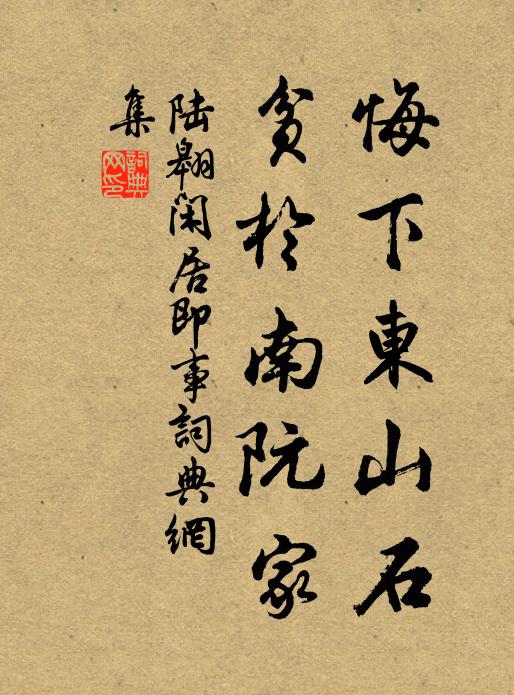 悔下東山石
貧於南阮家
陸翱閑居即事詞典網
集
詞典
网印